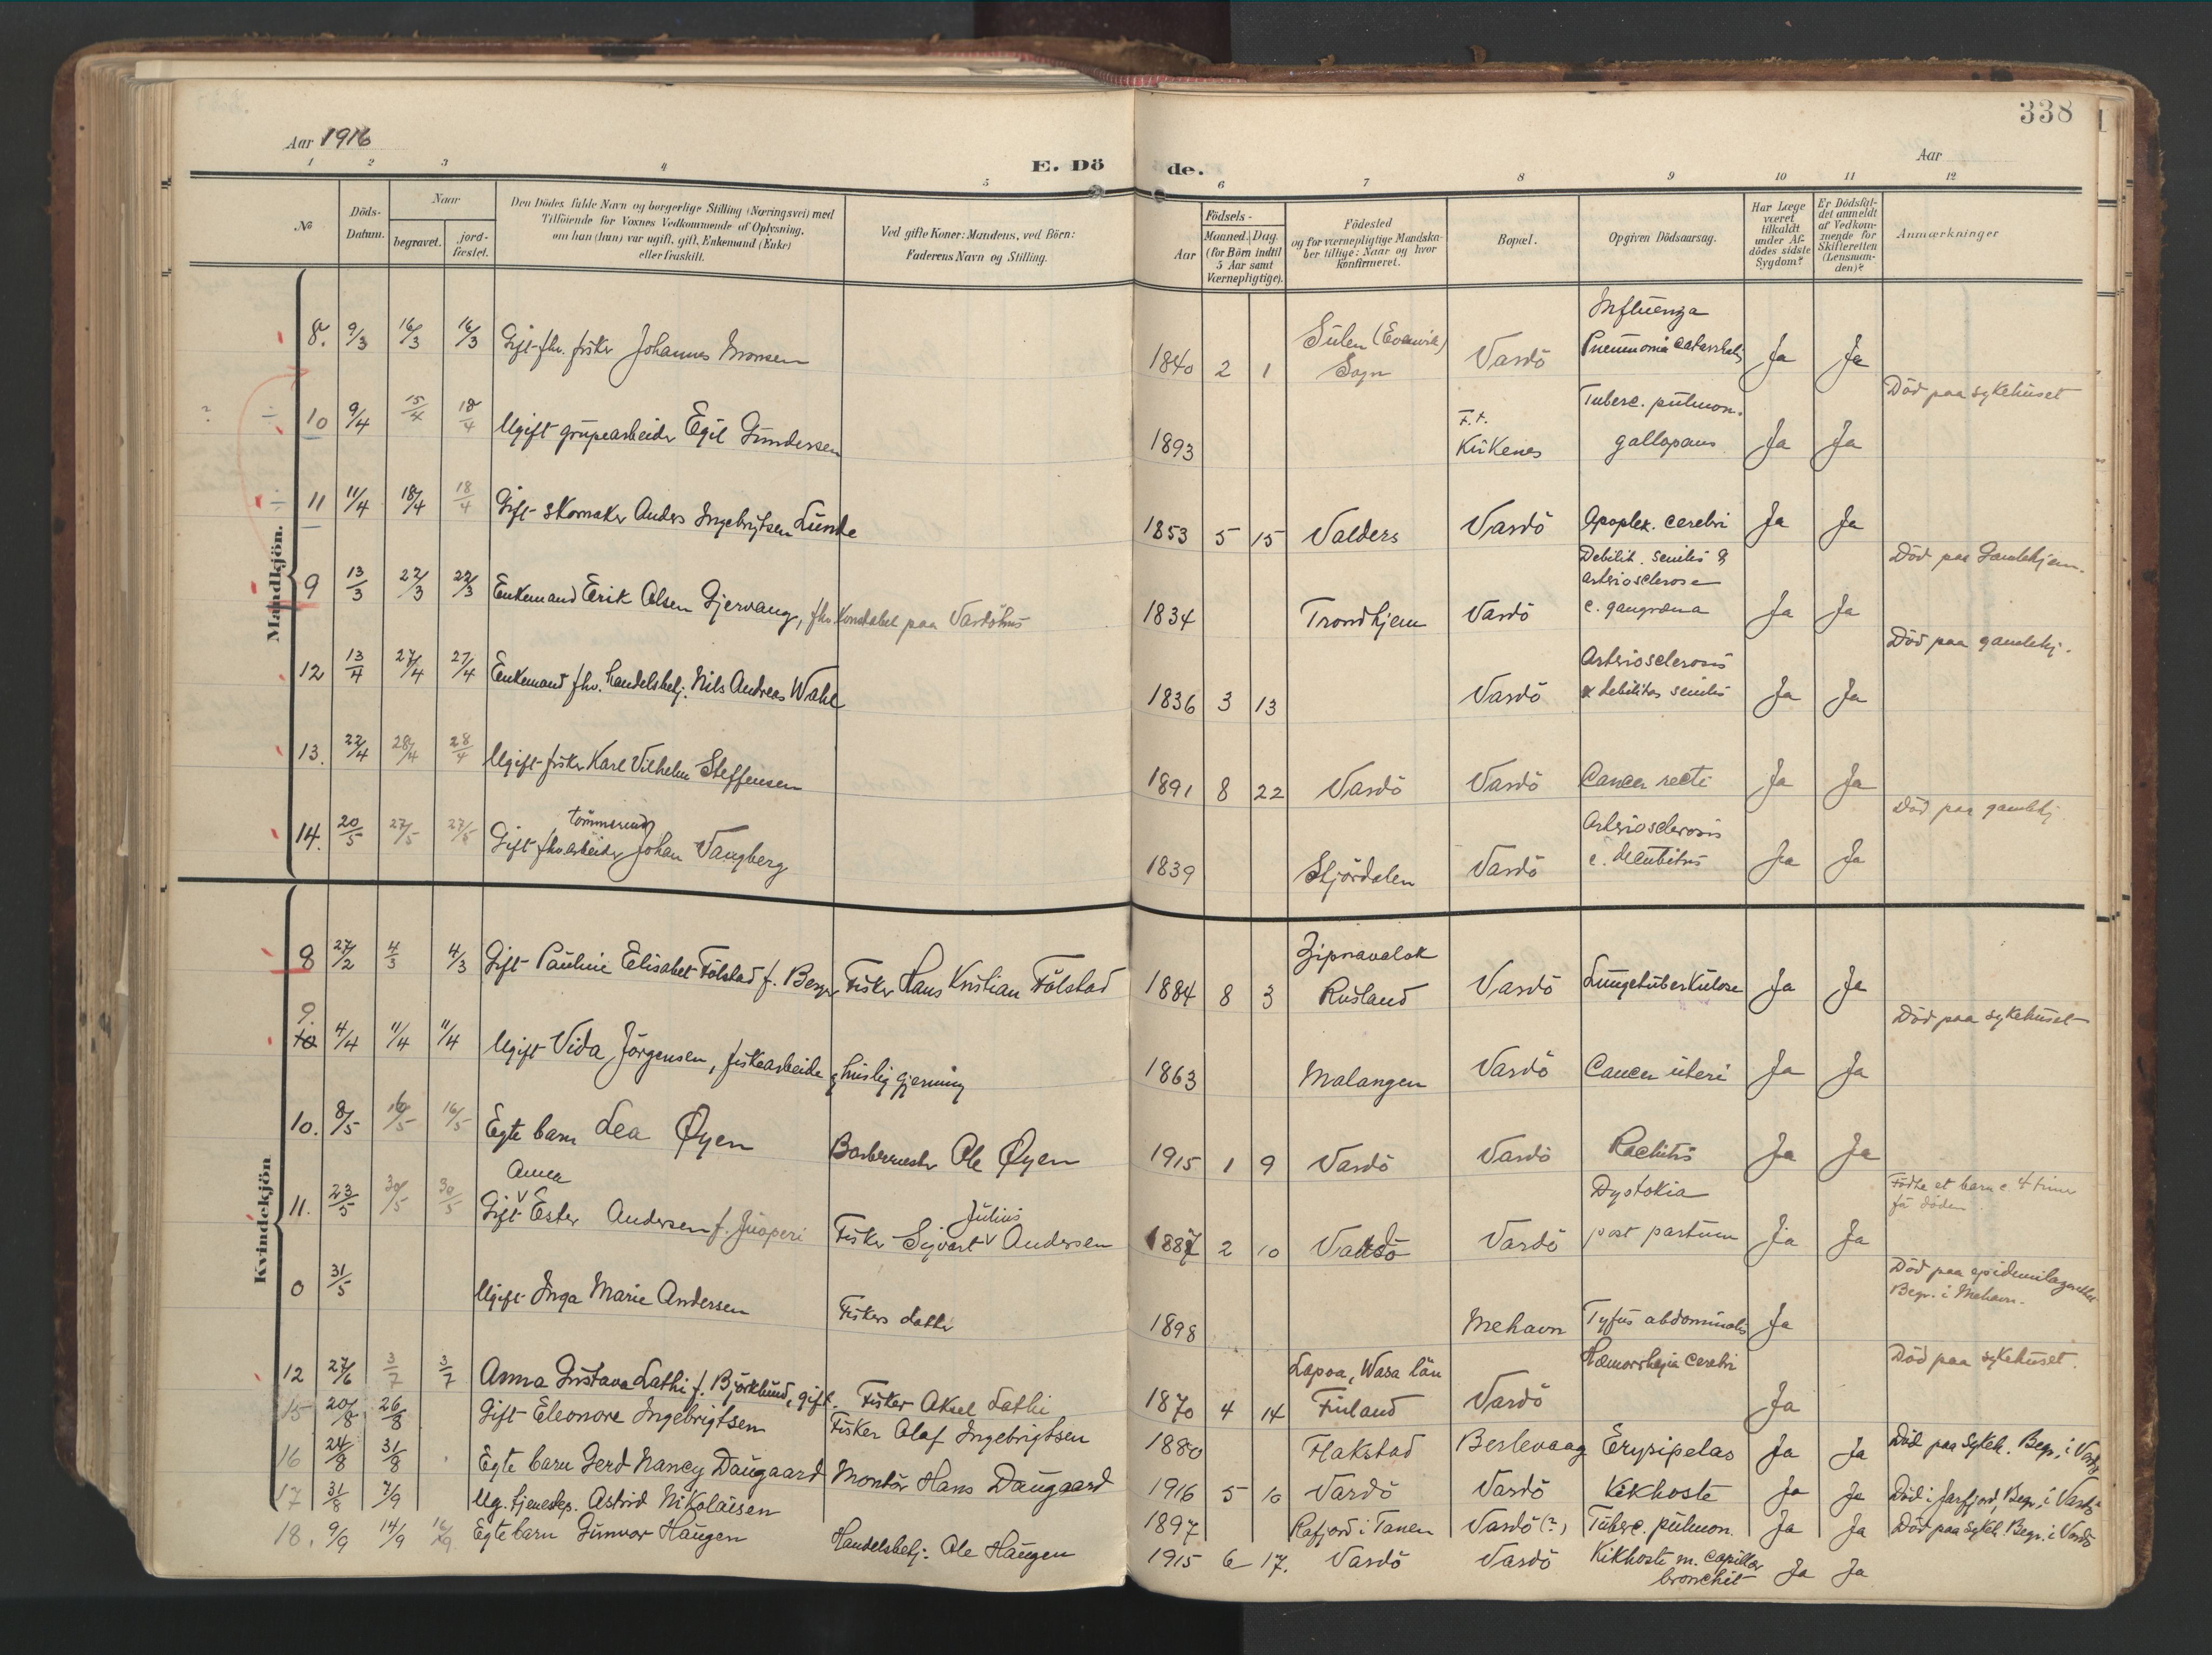 338
Aar 1916
Aar
E. Dö de.
1 2 3 4 5 6 7 8 9 10 11 12
№
Döds-Datum.
Naar
begravet.
jord-fæstet.
Den Dödes fulde Navn og borgerlige Stilling (Næringsvei) med
Tilföiende for Voxnes Vedkommende af Oplysning,
om han (hun) var ugift, gift, Enkemand (Enke)
eller fraskilt.
Ved gifte Koner: Mandens, ved Börn:
Faderens Navn og Stilling.
Födsels-
Aar
Maaned. Dag.
(for Börn indtil
5 Aar samt
Værnepligtige).
Födested
og for værnepligtige Mandska-
ber tillige: Naar og hvor
konfirmeret.
Bopæl.
Opgiven Dödsaarsag.
Har Læge
været
tilkaldt
under Af-
dödes sidste
Sygdom?
Er Dödsfal-
det anmeldt
af Vedkom-
mende for
Skifteretten
(Lensman-
den)?
Anmærkninger
Mandkjön.
8. 9/3 16/3 16/3 Gift fhv. fisker Johannes Monsen 1840 2 1 Sulen (Evenvik) Sogn Vardö Influenza Pneumonia catarrhalis Ja Ja
10 9/4 15/4 18/4 Ugift grubearbeider Egil Gundersen 1893 F.t. Kirkenes Tuberc. pulmon. gallopans Ja Ja Död paa sykehuset
11 11/4 18/4 18/4 Gift skomaker Anders Ingebrigtsen Lunde 1853 5 15 Valders Vardö Apoplex. cerebri Ja Ja
9 13/3 22/3 22/3 Enkemand Erik Olsen Gjervang, fhv. Konstabel paa Vardöhus 1834 Trondhjem Vardö Debilit. senilis & arteriosclerose c. gangræna Ja Ja Död paa Gamlehjem.
12 13/4 27/4 27/4 Enkemand fhv. handelsbetj. Nils Andreas Wahl 1836 3 13 Vardö Arteriosclerosis & debilitas senilis Ja Ja Död paa gamlehj.
13. 22/4 28/4 28/4 Ugift fisker Karl Vilhelm Steffensen 1891 8 22 Vardö Vardö Cancer recti Ja Ja
14. 20/5 27/5 27/5 Gift fhv. arbeider tömmermd Johan Vangberg 1839 Stjördalen Vardö Arteriosclerosis c. decubitus Ja Ja Död paa gamlehj
Kvindekjön
8 27/2 4/3 4/3 Gift Pauline Elisabet Fölstad f. Berger Fisker Hans Kristian Fölstad 1884 8 3 Zipnavalok Rusland Vardö Lungetuberkulose Ja Ja
9. 10 4/4 11/4 11/4 Ugift Vida Jörgensen, fiskearbeide & huslig gjerning 1863 Malangen Vardö Cancer uteri Ja Ja Död paa sykehuset
10. 8/5 16/5 16/5 Egte barn Lea Øyen Barbermester Ole Øyen 1915 1 9 Vardö Vardö Rachitis Ja Ja
11. 23/5 30/5 30/5 Gift Anna Ester Andersen f. Juoperi Fisker Sigvart Julius Andersen 1887 2 10 Vadsö Vardö Dystokia post partum Ja Ja Födte et barn c. 4 timer för döden.
0 31/5 Ugift Inga Marie Andersen Fiskers datter 1898 Mehavn Tyfus abdominalis Ja Död paa epidemilazarettet Begr. i Mehavn.
12 27/6 3/7 3/7 Anna Gustava Lathi f. Björklund, gift. Fisker Aksel Lathi 1870 4 14 Lapoa, Wasa län Finland Vardö Hæmorrhagia cerebri Ja Död paa sykehuset.
15 20/8 26/8 Gift Eleonore Ingebrigtsen Fisker Olaf Ingebrigtsen 1880 Flakstad Berlevaag Erysipelas Ja Ja Död paa sykeh. Begr. i Vardö
16 24/8 31/8 Egte barn Gerd Nancy Daugaard Montör Hans Daugaard 1916 5 10 Vardö Vardö Kikhoste Ja Ja Död i Jarfjord, Begr. i Vardö
17 31/8 7/9 Ug. tjenestep. Astrid Nikolaisen 1897 Rafjord i Tanen Vardö (?) Tuberc. pulmon. Ja Ja Död paa sykeh. Begr. i Vardö
18. 9/9 14/9 16/9 Egte barn Gunvor Haugen Handelsbetj. Ole Haugen 1915 6 17. Vardö Vardö Kikhoste m. capillær bronchit Ja Ja